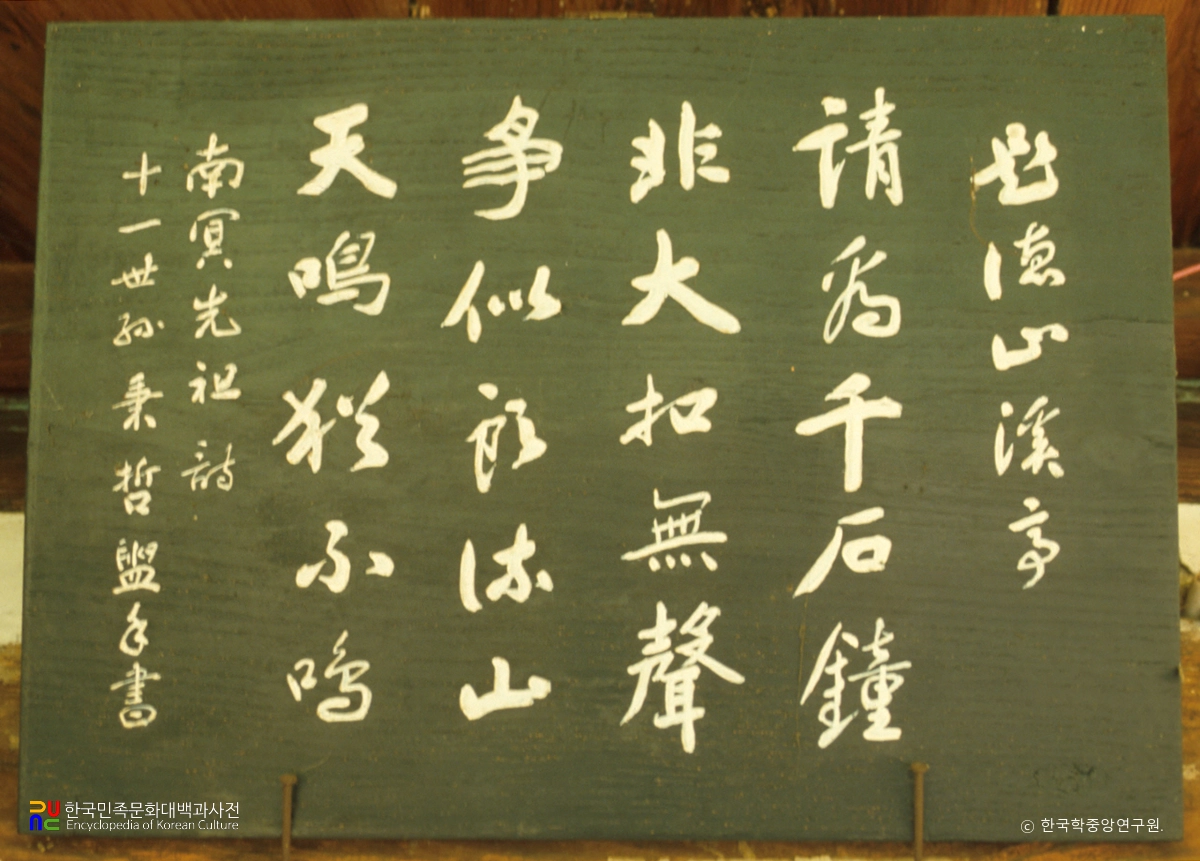 題德山溪亭
請看千石鐘
非大扣無聲
爭似頭流山
天鳴猶不鳴
南冥先祖詩
十一世孫秉哲盥手書
한국민족문화대백과사전
Encyclopedia of Korean Culture
© 한국학중앙연구원.